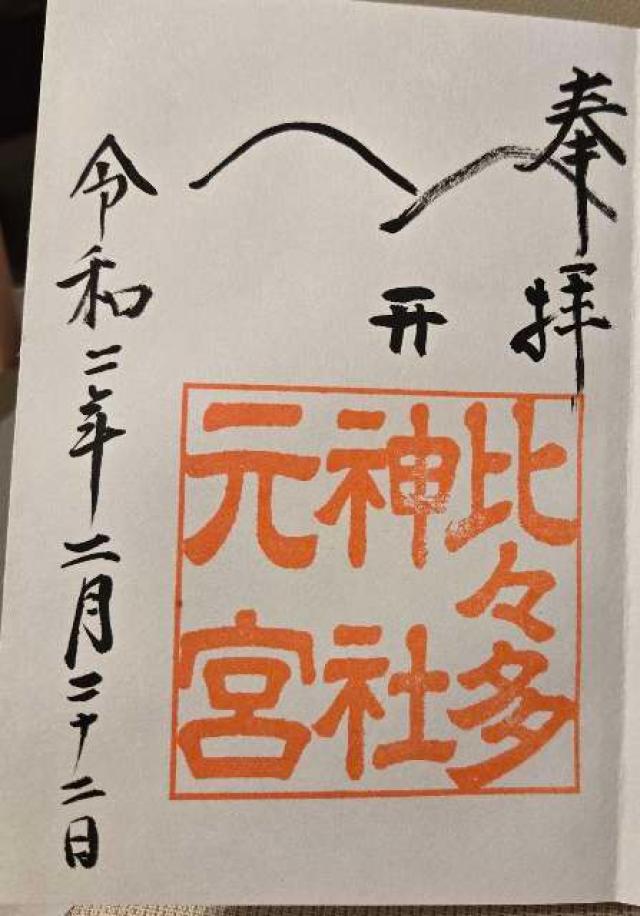 奉拝
开
比々多
神社
元宮
令和二年二月二十二日